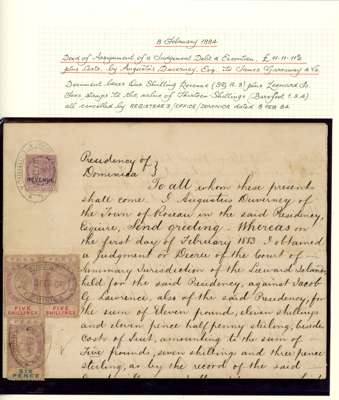 8 February 1892
Deed of Assignment of a Judgement Debt & Execution, £11-11-11½
plus Costs. by Augustus Duverney, Esq. to James Garraway & Co.
Document bears One Shilling Revenue (SG, R.3) plus Leeward Is
stamps to the value of Thirteen Shillings (Barefoot 1.3.4)
all cancelled by REGISTRAR'S/OFFICE/DOMINICA dated 8 FEB 92
REVENUE
Presidency of }
Dominica }
To all whom these presents
shall come. I Augustus Duverney of
the Town of Roseau in the said Presidency,
Esquire, Send greeting. Whereas on
the first day of February 1883 I obtained
a Judgment or Decree of the Court of
Summary Jurisdiction of the Leeward Islands,
held for the said Presidency, against Jacob
G Lawrence, also of the said Presidency, for
the sum of Eleven pound, eleven shillings
and eleven pence half penny sterling, beside
costs of Suit, amounting to the sum of
Five pounds, seven shilling and three pence
sterling, as by the record of the said
FIVE SHILLINGS
FIVE SHILLINGS
SIX PENCE